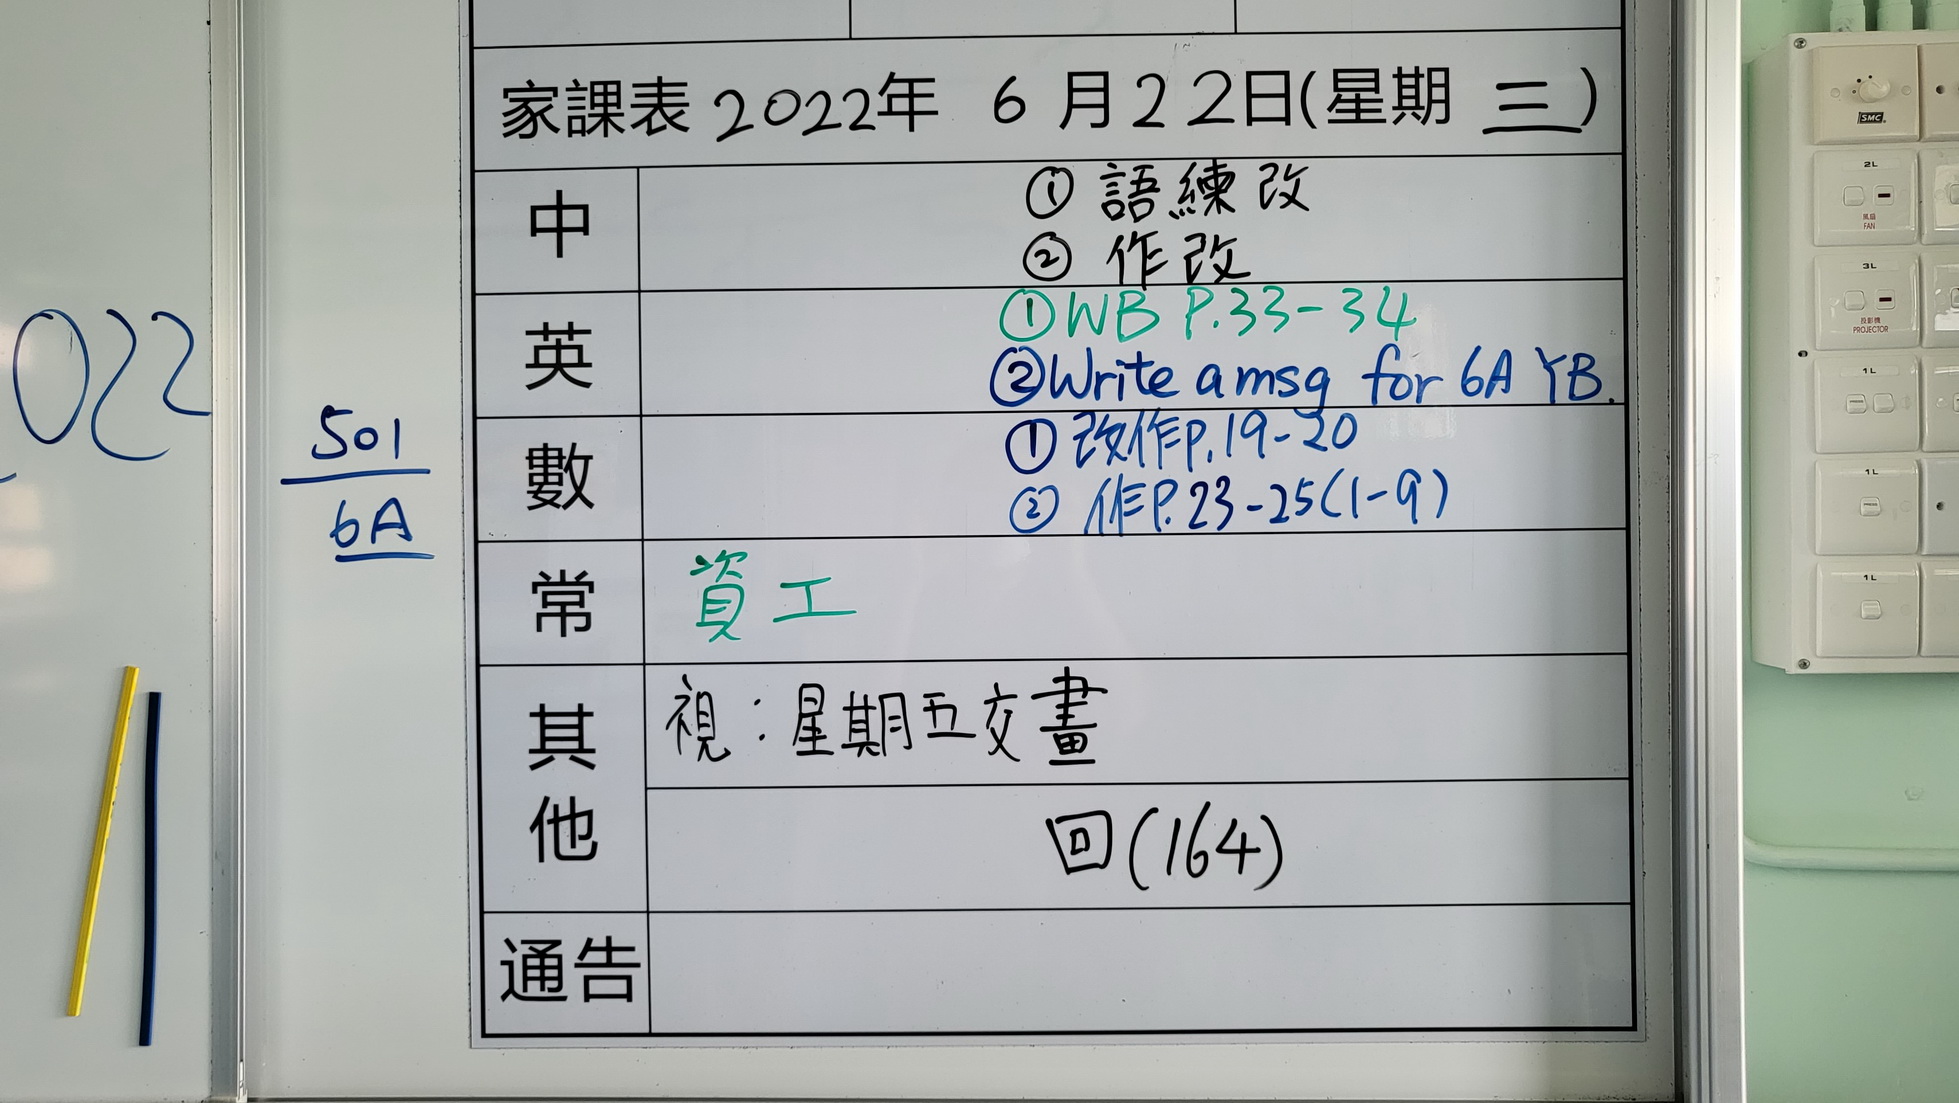 家課表 2022年 6月22日(星期 三)
中
① 語練改
② 作改
英
① WB P.33-34
② Write a msg for 6A YB.
數
① 改作P.19-20
② 作P.23-25(1-9)
常
資工
其他
視：星期五交畫
回(164)
通告
022
501
6A
SMC
2L
風扇
FAN
3L
投影機
PROJECTOR
1L
1L
PRESS
1L